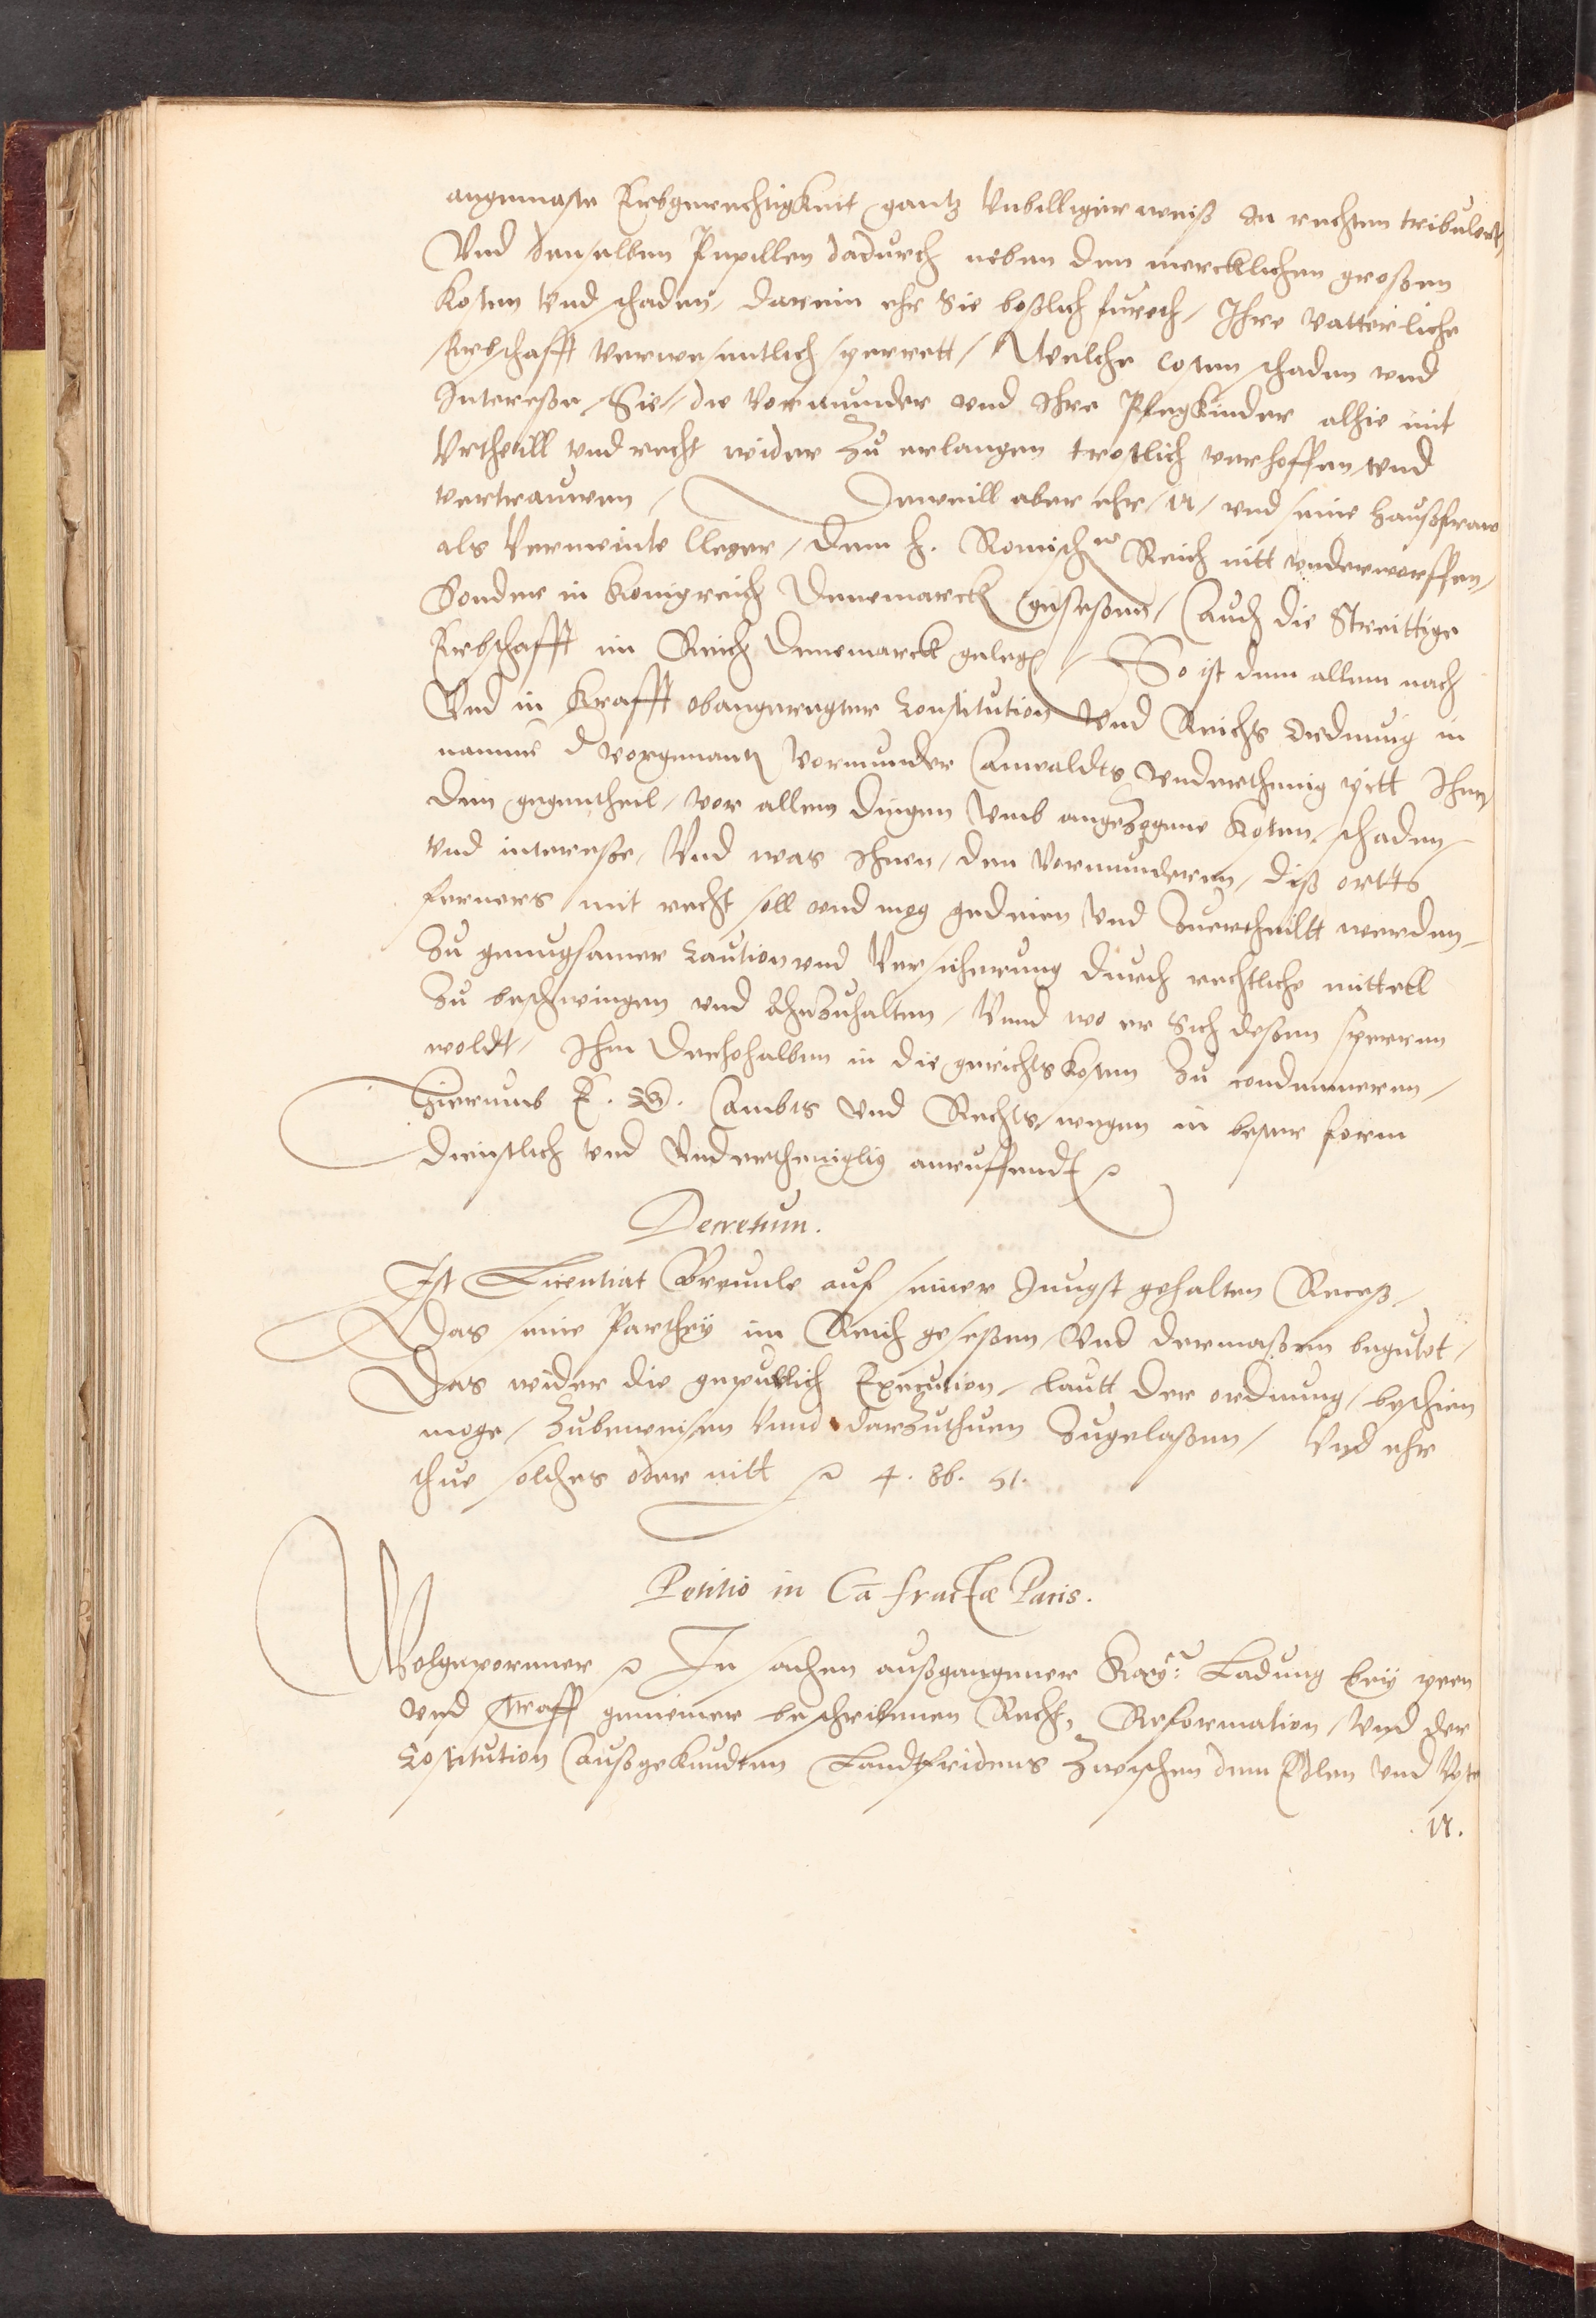 angemaste Erbgerechtigkeit gantz Vnbilliger weiß In rechten tribulert,
Vnd denselben Pupillen dadurch neben den mercklichen grossen
kosten vnd schaden, darein ehr Sie boßlich furet, Ihre vatterliche
Erbschafft verwesentlich sperrett, Welche costen schaden vnd
Interesse, Sie, die Vormunder vnd Ihre Pflegkinder alhie mit
Vrtheill vnd recht wider zu erlangen trostlich verhoffen vnd
vertrauwen, Dieweill aber ehr, N, vnd seine haußfraw
als Vermeinte Cleger, dem h. Romischen Reich nitt vnderworffen,
Sonder in Konigreich Denemarck gesessenn, Auch die Streittige
Erbschafft im Reich Denemarck gelegen, So ist dem allem nach
Vnd in Krafft obangeregter Constitution Vnd Reichs Ordnung in
namme d vorgenanten Vormunder Anwaldts vnderthenig pitt Ihnen,
den gegentheil, vor allem dingen Vmb angezogene Kosten, schaden,
vnd interesse, Vnd was Ihnen, den Vormunderen, diß ortts
ferners mit recht soll vnd mog gedeien vnd Zuertheiltt werden,
Zu genugsamer Caution vnd Versicherung durch rechtliche mittell
Zu beschwingen vnd Ahnzuhalten, Vnnd wo er Sich dessen sperren
woldt, Ihn derhohalben in die gerichts kosten Zu condemneren,
Hierumb E. G. Ambts vnd Rechts, wegen in bester form
dienstlich vnd Vnderthenigliy anruffendt
Decretum.
Ist Licentiat Breunle auf seiner Jungst gehalten Receß,
Das seine Parthey im Reich gesessen, Vnd dermassen begutet,
Das wider die gepurlich Execution, lautt der ordnung, beschien
moge, Zubeweisen Vnnd darzuthuen Zugelassen, Vnd ehr
thue solches oder nitt 4. 8b. 51.
Petitio in Cā fractæ Pacis.
Wolgeporenner In sachen außgangener Kay: Ladung bey peen
vnd straff gemeiner beschribennen Recht, Reformation, Vnd der
Costitution Außgekundten Landtfridens Zwischen dem Edlen vnd Veste
N.